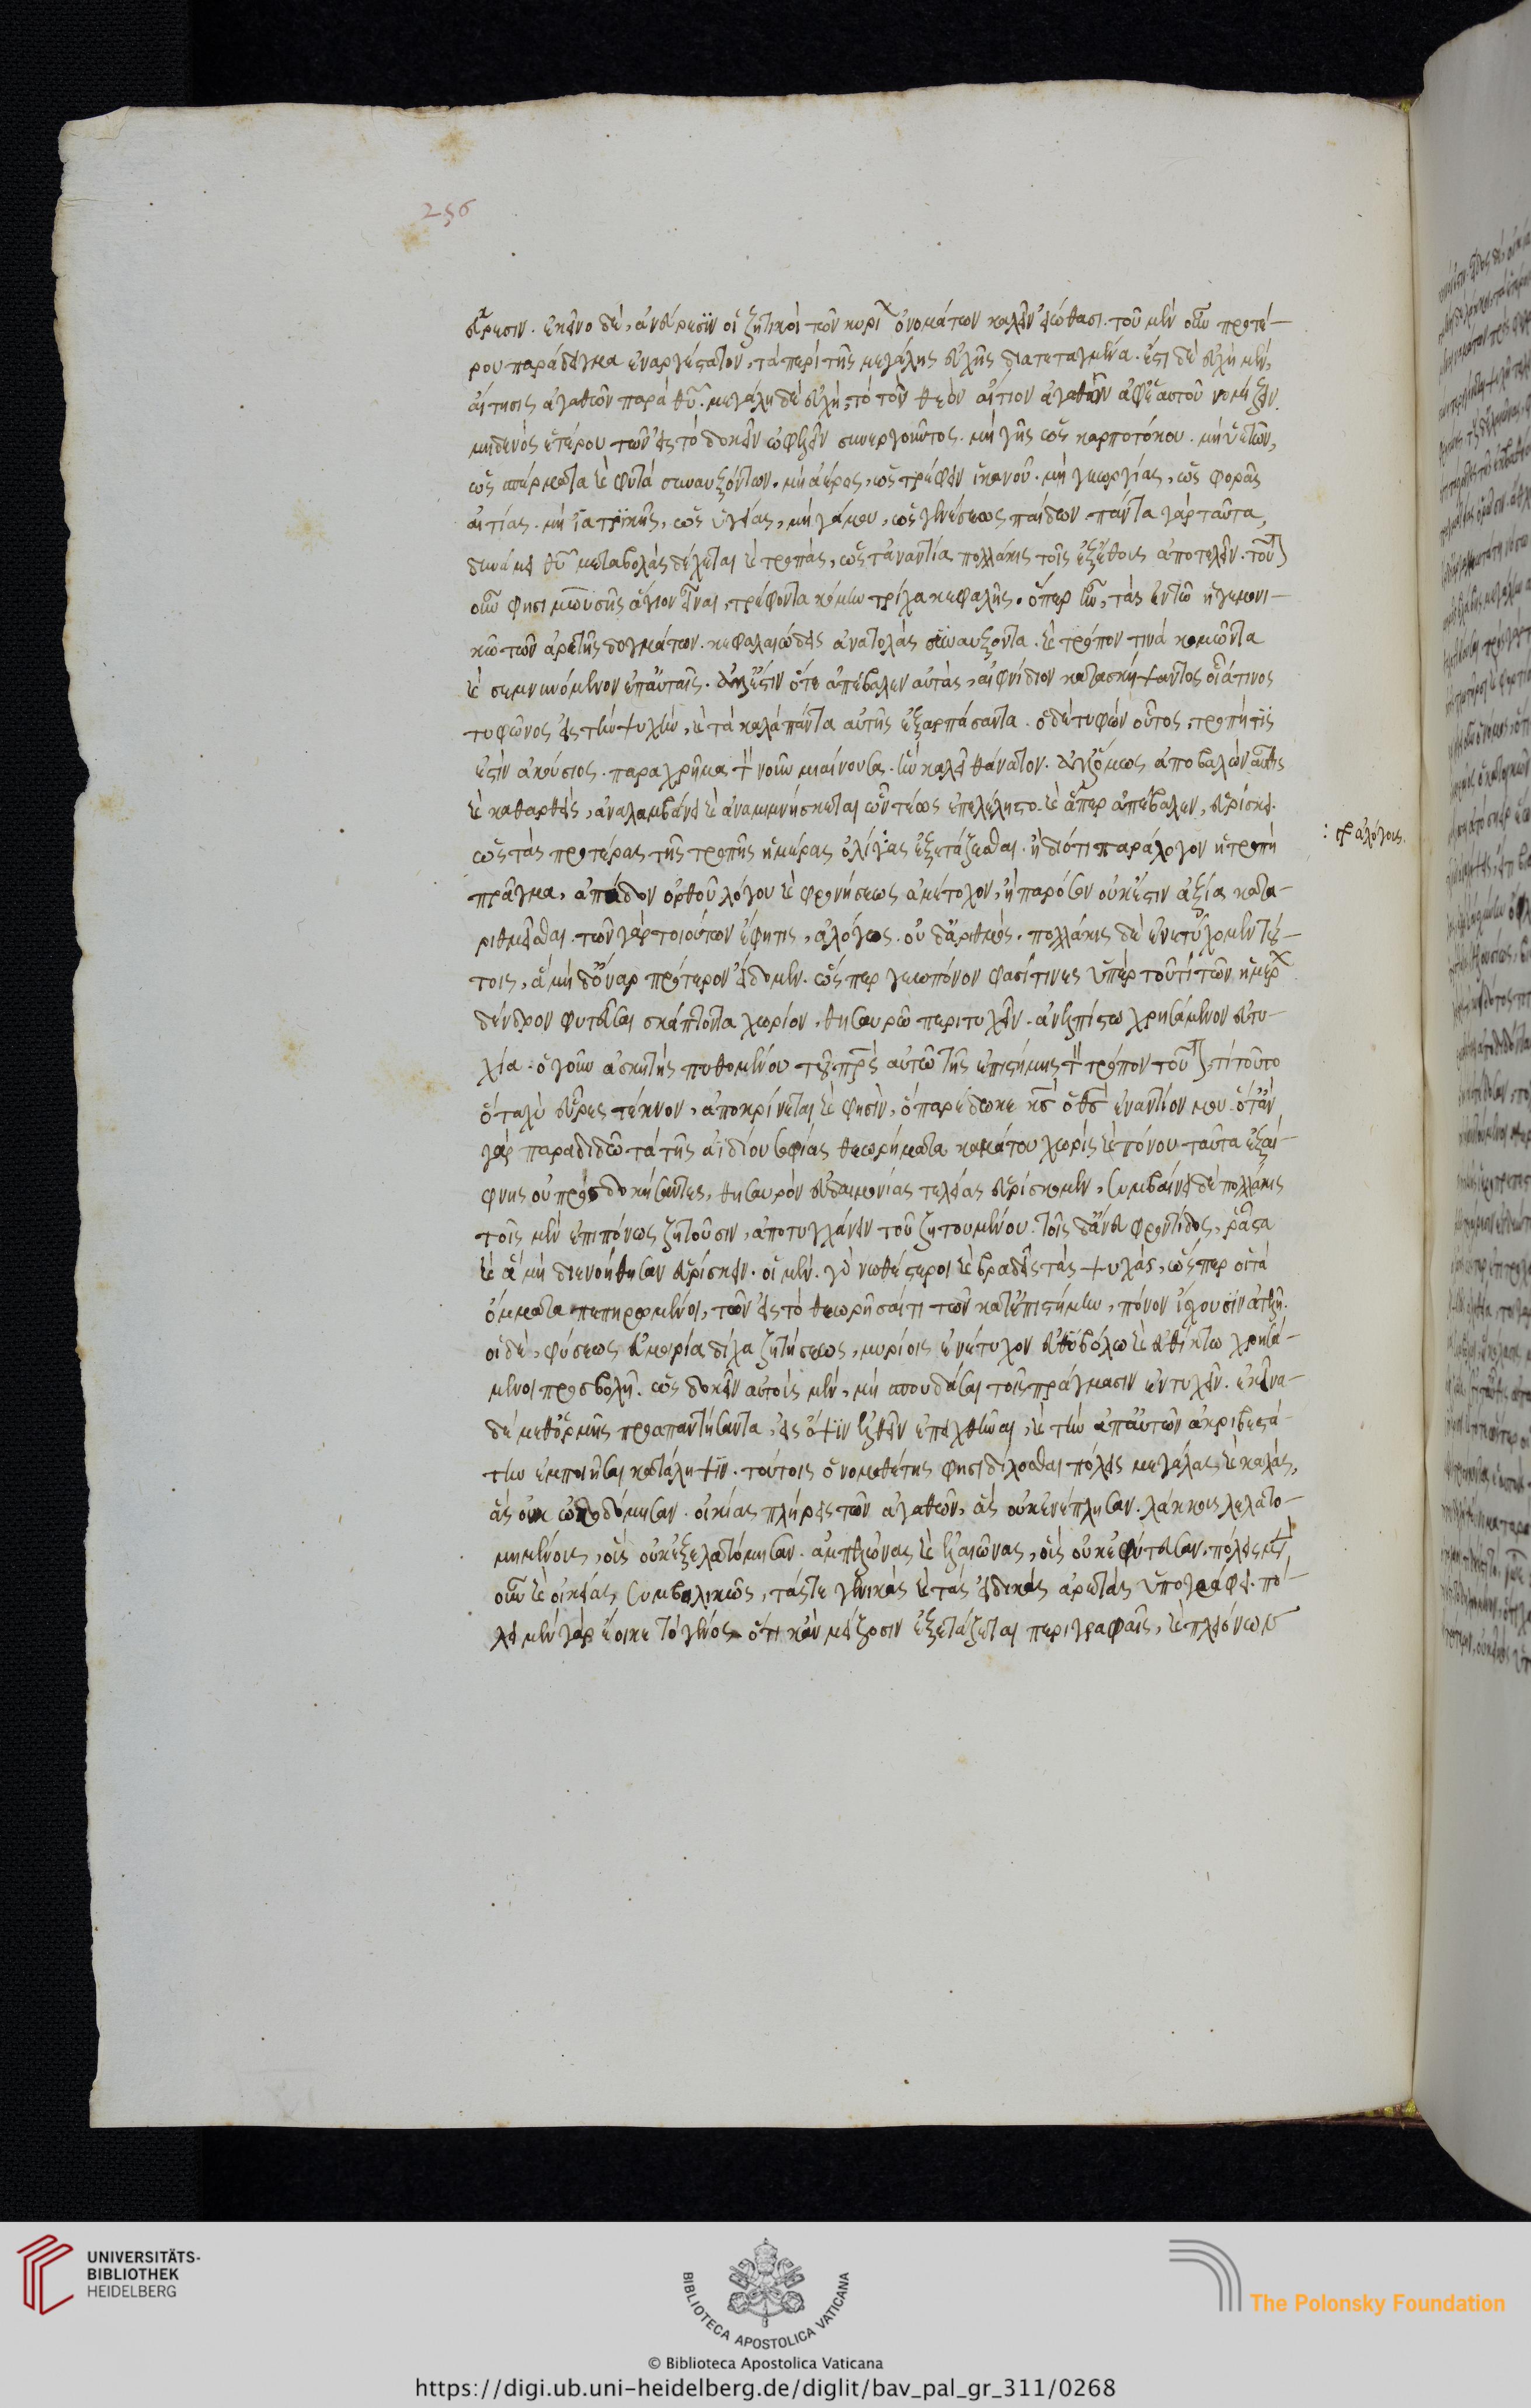 256
εὕρεσιν. ἐκεῖνο δὲ, ἀνεύρεσϊν οἱ ζητικοὶ τῶν κυρί ὀνομάτων καλεῖν εἰώθασι. τοῦ μὲν οὖν προτέ-
ρου παράδειγμα ἐναργέστατον, τὰ περὶ τῆς μεγάλης εὐχῆς διατεταγμένα. ἔστι δὲ εὐχὴ μὲν,
αἴτησις ἀγαθῶν παρὰ θυ. μεγάλη δὲ εὐχὴ, τὸ τὸν θεὸν αἴτιον ἀγαθῶν ἀφ' ἑαυτοῦ νομίζειν.
μηδενὸς ἑτέρου τῶν εἰς τὸ δοκεῖν ὠφελεῖν συνεργοῦντος. μὴ γῆς ὡς καρποτόκου. μὴ ὑετῶν,
ὡς σπέρματα καὶ φυτὰ συναυξόντων. μὴ ἀέρος, ὡς τρέφειν ἱκανοῦ. μὴ γεωργίας, ὡς φορᾶς
αἰτίας. μὴ ἰατρικῆς, ὡς ὑγείας, μὴ γάμου, ὡς γενέσεως παίδων. πάντα γὰρ ταῦτα,
δυνάμει θυ μεταβολὰς δέχεται καὶ τροπὰς, ὡς τἀναντία πολλάκις τοῖς ἐξ ἔθους ἀποτελεῖν. τοῦτον
οὖν φησι μωϋσῆς ἅγιον εἶναι, τρέφοντα κόμην τρίχα κεφαλῆς. ὅπερ ἦν, τὰς ἐν τῷ ἡγεμονι-
κῷ τῶν ἀρετῆς δογμάτων. κεφαλαιώδεις ἀνατολὰς συναύξοντα. καὶ τρόπον τινὰ κομῶντα
καὶ σεμνυνόμενον ἐπ' αὐταῖς. ἀλλ' ἔστιν ὅτε ἀπέβαλεν αὐτὰς, αἰφνίδιον κατασκήψαντος οἷά τινος
τυφῶνος εἰς τὴν ψυχὴν, καὶ τὰ καλὰ πάντα αὐτῆς ἐξαρπάσαντα. ὁ δὲ τυφὼν οὗτος, τροπή τις
ἐστὶν ἀκούσιος. παραχρῆμα τὸν νοῦν μιαίνουσα. ἣν καλεῖ θάνατον. ἀλλ' ὅμως ἀποβαλὼν αὖθις
καὶ καθαρθεὶς, ἀναλαμβάνει καὶ ἀναμιμνήσκεται ὧν τέως ἐπελέληστο. καὶ ἅπερ ἀπέβαλεν, εὑρίσκει.
ὡς τὰς προτέρας τῆς τροπῆς ἡμέρας ὀλίγας ἐξετάζεσθαι. ἢ διότι παράλογον ἡ τροπὴ
πρᾶγμα, ἀπᾷδον ὀρθοῦ λόγου καὶ φρονήσεως ἀμέτοχον, ἢ παρόσον οὐκ ἔστιν ἀξία κατα-
ριθμεῖσθαι. τῶν γὰρ τοιούτων ἔφη τις, ἀλόγως. οὐδ' ἀριθμὸς. πολλάκις δὲ ἐνετύχομεν τού-
τοις, ἃ μὴ δ' ὄναρ πρότερον εἴδομεν. ὥς περ γεωπόνον φασί τινες ὑπὲρ τοῦ τὶ τῶν ἡμέρ
δένδρον φυτεῦσαι σκάπτοντα χωρίον, θησαυρῷ περιτυχεῖν. ἀνελπίστω χρησάμενον εὐτυ-
χία. ὁ γοῦν ἀσκητὴς πυθομένου τοῦ πρς αὐτῷ τῆς ἐπιστήμης τὸν τρόπον τοῦτον, τί τοῦτο
ὃ ταχὺ εὗρες τέκνον, ἀποκρίνεται καὶ φησὶν, ὃ παρέδωκε κς ὁ θς ἐναντίον μου. ὅτ' ἂν
γὰρ παραδιδῷ τὰ τῆς ἀϊδίου σοφίας θεωρήματα καμάτου χωρὶς καὶ πόνου ταῦτα ἐξαί-
φνης οὐ προσδοκήσαντες, θησαυρὸν εὐδαιμονίας τελείας εὑρίσκομεν, συμβαίνει δὲ πολλάκις
τοῖς μὲν ἐπιπόνως ζητοῦσιν, ἀποτυγχάνειν τοῦ ζητουμένου. τοῖς δ' ἄνευ φροντίδος, ῥᾷστα
καὶ ἃ μὴ διενοήθησαν εὑρίσκειν. οἱ μὲν γὰρ νωθέστεροι καὶ βραδεῖς τὰς ψυχὰς, ὥςπερ οἱ τὰ
ὄμματα πεπηρωμένοι, τῶν εἰς τὸ θεωρῆσαί τι τῶν κατ' ἐπιστήμην, πόνον ἴσχουσϊν ἀτελῆ.
οἱ δὲ, φύσεως εὐμοιρία δίχα ζητήσεως, μυρίοις ἐνέτυχον εὐθυβόλω καὶ εὐθίκτω χρησά-
μενοι προσβολῆ. ὡς δοκεῖν αὐτοὺς μὲν, μὴ σπουδάσαι τοῖς πράγμασιν ἐντυχεῖν. ἐκεῖνα-
δὲ μεθ' ὁρμῆς προαπαντήσαντα, εἰς ὄψϊν ἐλθεῖν ἐπειχθῆναι, καὶ τὴν ἀπ' αὐτῶν ἀκριβεστά-
την ἐμποιῆσαι κατάληψϊν. τούτοις ὁ νομοθέτης φησὶ δίδοσθαι πόλεις μεγάλας καὶ καλὰς,
ἃς οὐκ ὠκοδόμησαν. οἰκίας πλήρεις τῶν ἀγαθῶν, ἃς οὐκ ἐνέπλησαν. λάκκους λελατο-
μημένους, οὓς οὐκ ἐξελατόμησαν. ἀμπελῶνας καὶ ἐλαιῶνας, οὓς οὐκ ἐφύτευσαν. πόλεις μὲν
οὖν καὶ οἰκίας, συμβολικῶς, τάς τε γενικὰς καὶ τὰς εἰδικὰς ἀρετὰς ὑπογράφει. πό-
λει μὲν γὰρ ἔοικε τὸ γένος ὅτι κἂν μείζοσιν ἐξετάζεται περιγραφαῖς, καὶ πλείόνων
UNIVERSITÄTS-
BIBLIOTHEK
HEIDELBERG
BIBLIOTECA APOSTOLICA VATICANA
The Polonsky Foundation
© Biblioteca Apostolica Vaticana
https://digi.ub.uni-heidelberg.de/diglit/bav_pal_gr_311/0268